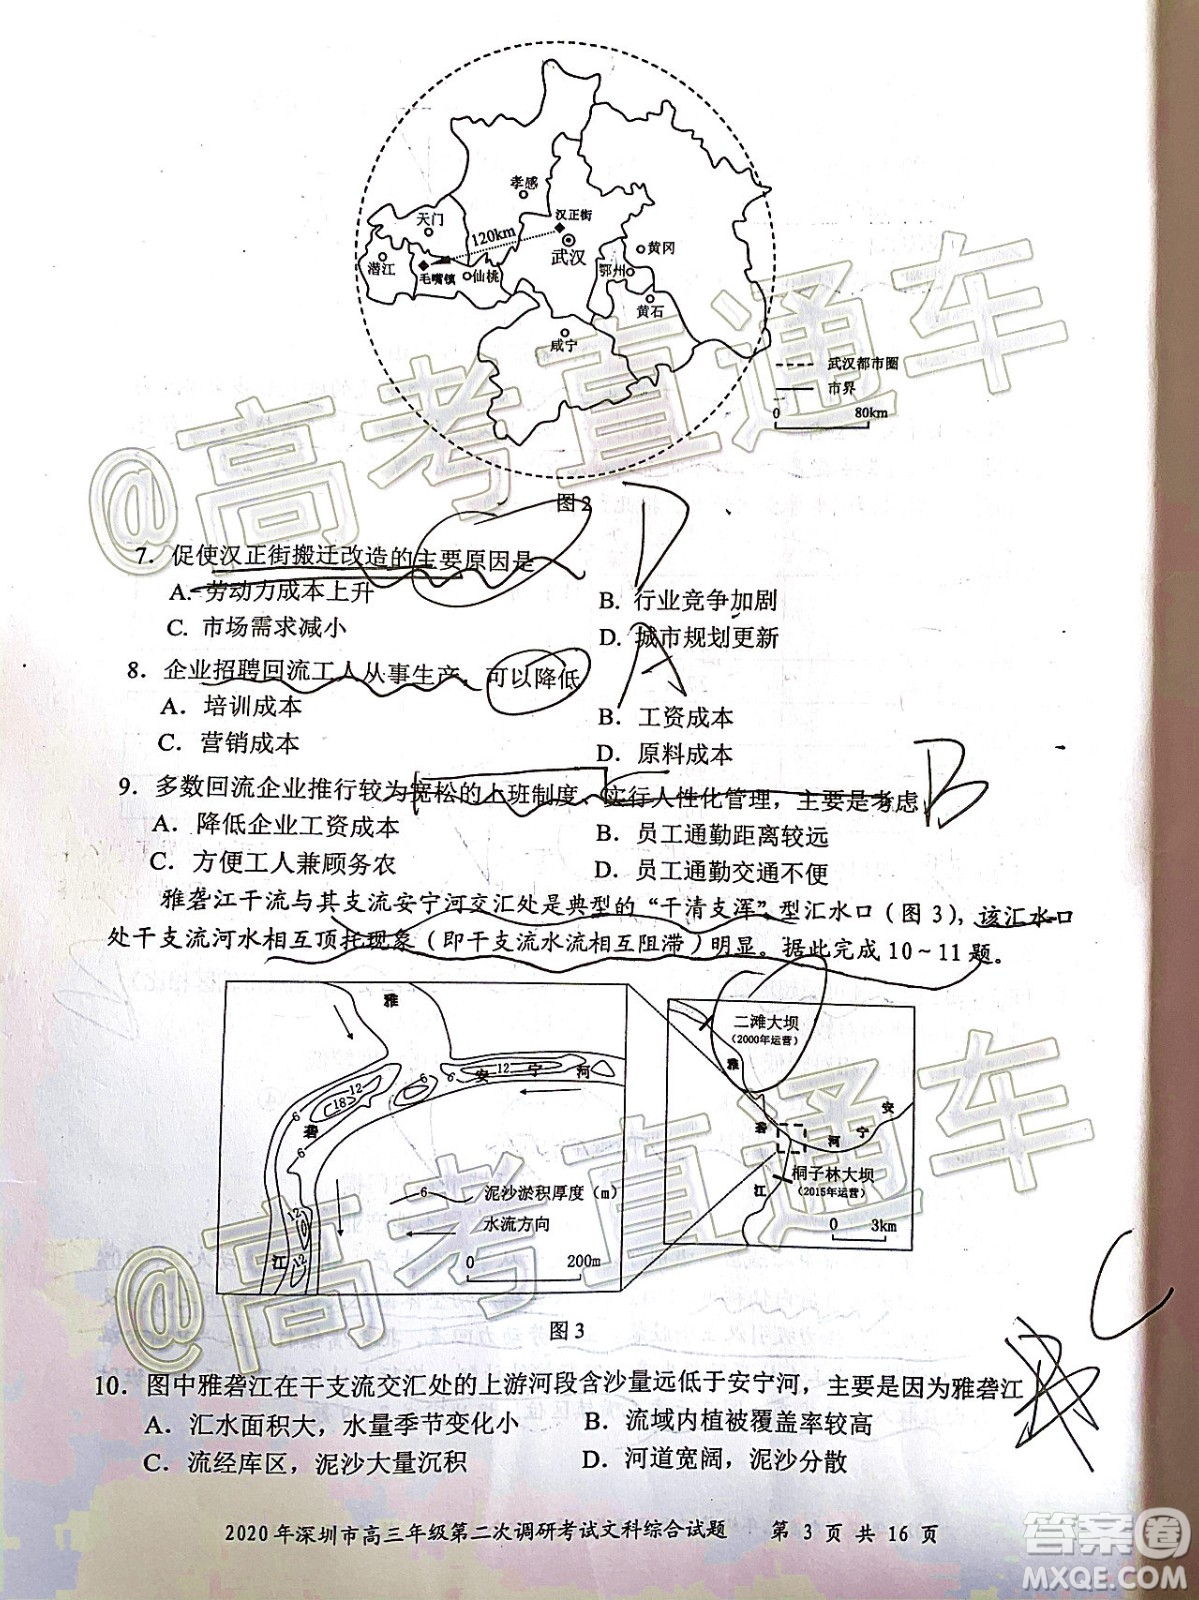 孝感
天门
汉正街
120km
武汉
黄冈
潜江
毛嘴镇
仙桃
鄂州
黄石
咸宁
武汉都市圈
市界
0 80km
图2
7. 促使汉正街搬迁改造的主要原因是
D
A. 劳动力成本上升
B. 行业竞争加剧
C. 市场需求减小
D. 城市规划更新
8. 企业招聘回流工人从事生产，可以降低
A
A. 培训成本
B. 工资成本
C. 营销成本
D. 原料成本
9. 多数回流企业推行较为宽松的上班制度、实行人性化管理，主要是考虑
B
A. 降低企业工资成本
B. 员工通勤距离较远
C. 方便工人兼顾务农
D. 员工通勤交通不便
雅砻江干流与其支流安宁河交汇处是典型的“干清支浑”型汇水口（图3），该汇水口
处干支流河水相互顶托现象（即干支流水流相互阻滞）明显。据此完成10～11题。
雅
砻
江
安 宁 河
6
12
18
12
6
6
12
6
6
12
12
—6— 泥沙淤积厚度（m）
水流方向
0 200m
二滩大坝
(2000年运营)
雅
砻
江
安
宁
河
桐子林大坝
(2015年运营)
0 3km
图3
C
10. 图中雅砻江在干支流交汇处的上游河段含沙量远低于安宁河，主要是因为雅砻江
A. 汇水面积大，水量季节变化小
B. 流域内植被覆盖率较高
C. 流经库区，泥沙大量沉积
D. 河道宽阔，泥沙分散
2020年深圳市高三年级第二次调研考试文科综合试题 第 3 页 共 16 页
@高考直通车
@高考直通车
答案圈
MXQE.COM